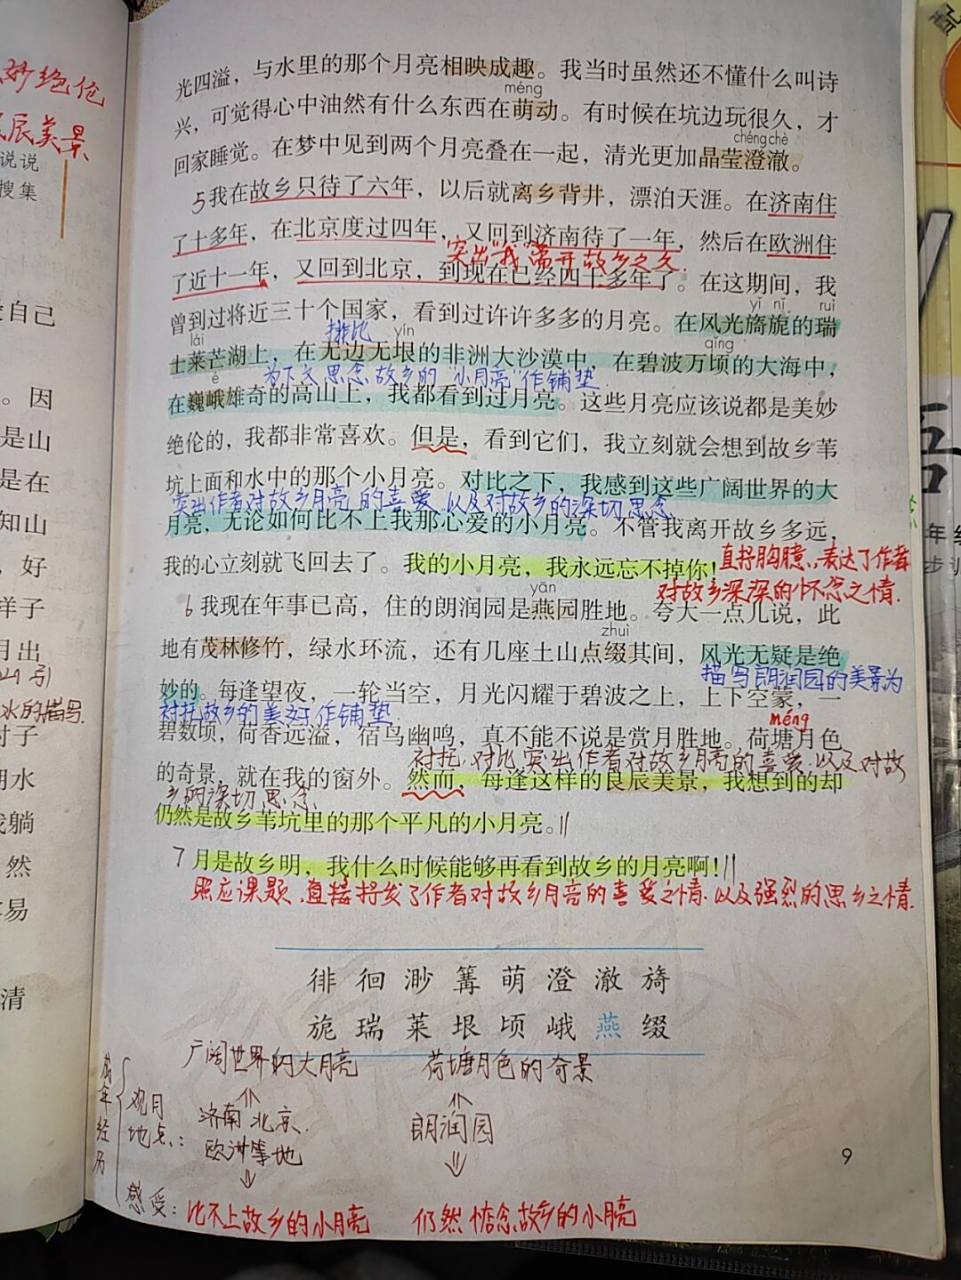 妙绝伦
辰美景
说说
搜集
自己
。因
是山
是在
知山
，好
样子
月出
水的描写.
对子
水
躺
然
易
清
光四溢，与水里的那个月亮相映成趣。我当时虽然还不懂什么叫诗
méng
兴，可觉得心中油然有什么东西在萌动。有时候在坑边玩很久，才
chéng chè
回家睡觉。在梦中见到两个月亮叠在一起，清光更加晶莹澄澈。
5 我在故乡只待了六年，以后就离乡背井，漂泊天涯。在济南住
了十多年，在北京度过四年，又回到济南待了一年，然后在欧洲住
突出“我”离开故乡之久.
了近十一年，又回到北京，到现在已经四十多年了。在这期间，我
曾到过将近三十个国家，看到过许许多多的月亮。在风光旖旎的瑞
yǐ nǐ ruì
lái 排比 yín qǐng
士莱芒湖上，在无边无垠的非洲大沙漠中，在碧波万顷的大海中，
é 为下文思念故乡的小月亮作铺垫.
在巍峨雄奇的高山上，我都看到过月亮。这些月亮应该说都是美妙
绝伦的，我都非常喜欢。但是，看到它们，我立刻就会想到故乡苇
坑上面和水中的那个小月亮。对比之下，我感到这些广阔世界的大
突出作者对故乡月亮的喜爱.以及对故乡的深切思念
月亮，无论如何比不上我那心爱的小月亮。不管我离开故乡多远，
我的心立刻就飞回去了。我的小月亮，我永远忘不掉你！
直抒胸臆,表达了作者
对故乡深深的怀念之情.
yān
6 我现在年事已高，住的朗润园是燕园胜地。夸大一点儿说，此
zhuì
地有茂林修竹，绿水环流，还有几座土山点缀其间，风光无疑是绝
描写朗润园的美景为
妙的。每逢望夜，一轮当空，月光闪耀于碧波之上，上下空蒙，一
衬托故乡的美好作铺垫.
méng
碧数顷，荷香远溢，宿鸟幽鸣，真不能不说是赏月胜地。荷塘月色
衬托.对比.突出作者对故乡月亮的喜爱.以及对故
的奇景，就在我的窗外。然而，每逢这样的良辰美景，我想到的却
乡的深切思念.
仍然是故乡苇坑里的那个平凡的小月亮。
7 月是故乡明，我什么时候能够再看到故乡的月亮啊！
照应课题.直接抒发了作者对故乡月亮的喜爱之情.以及强烈的思乡之情.
徘 徊 渺 篝 萌 澄 澈 旖
旎 瑞 莱 垠 顷 峨 燕 缀
广阔世界的大月亮 荷塘月色的奇景
成年经历
观月地点：
济南 北京.
欧洲等地
朗润园
9
感受：比不上故乡的小月亮 仍然惦念故乡的小月亮